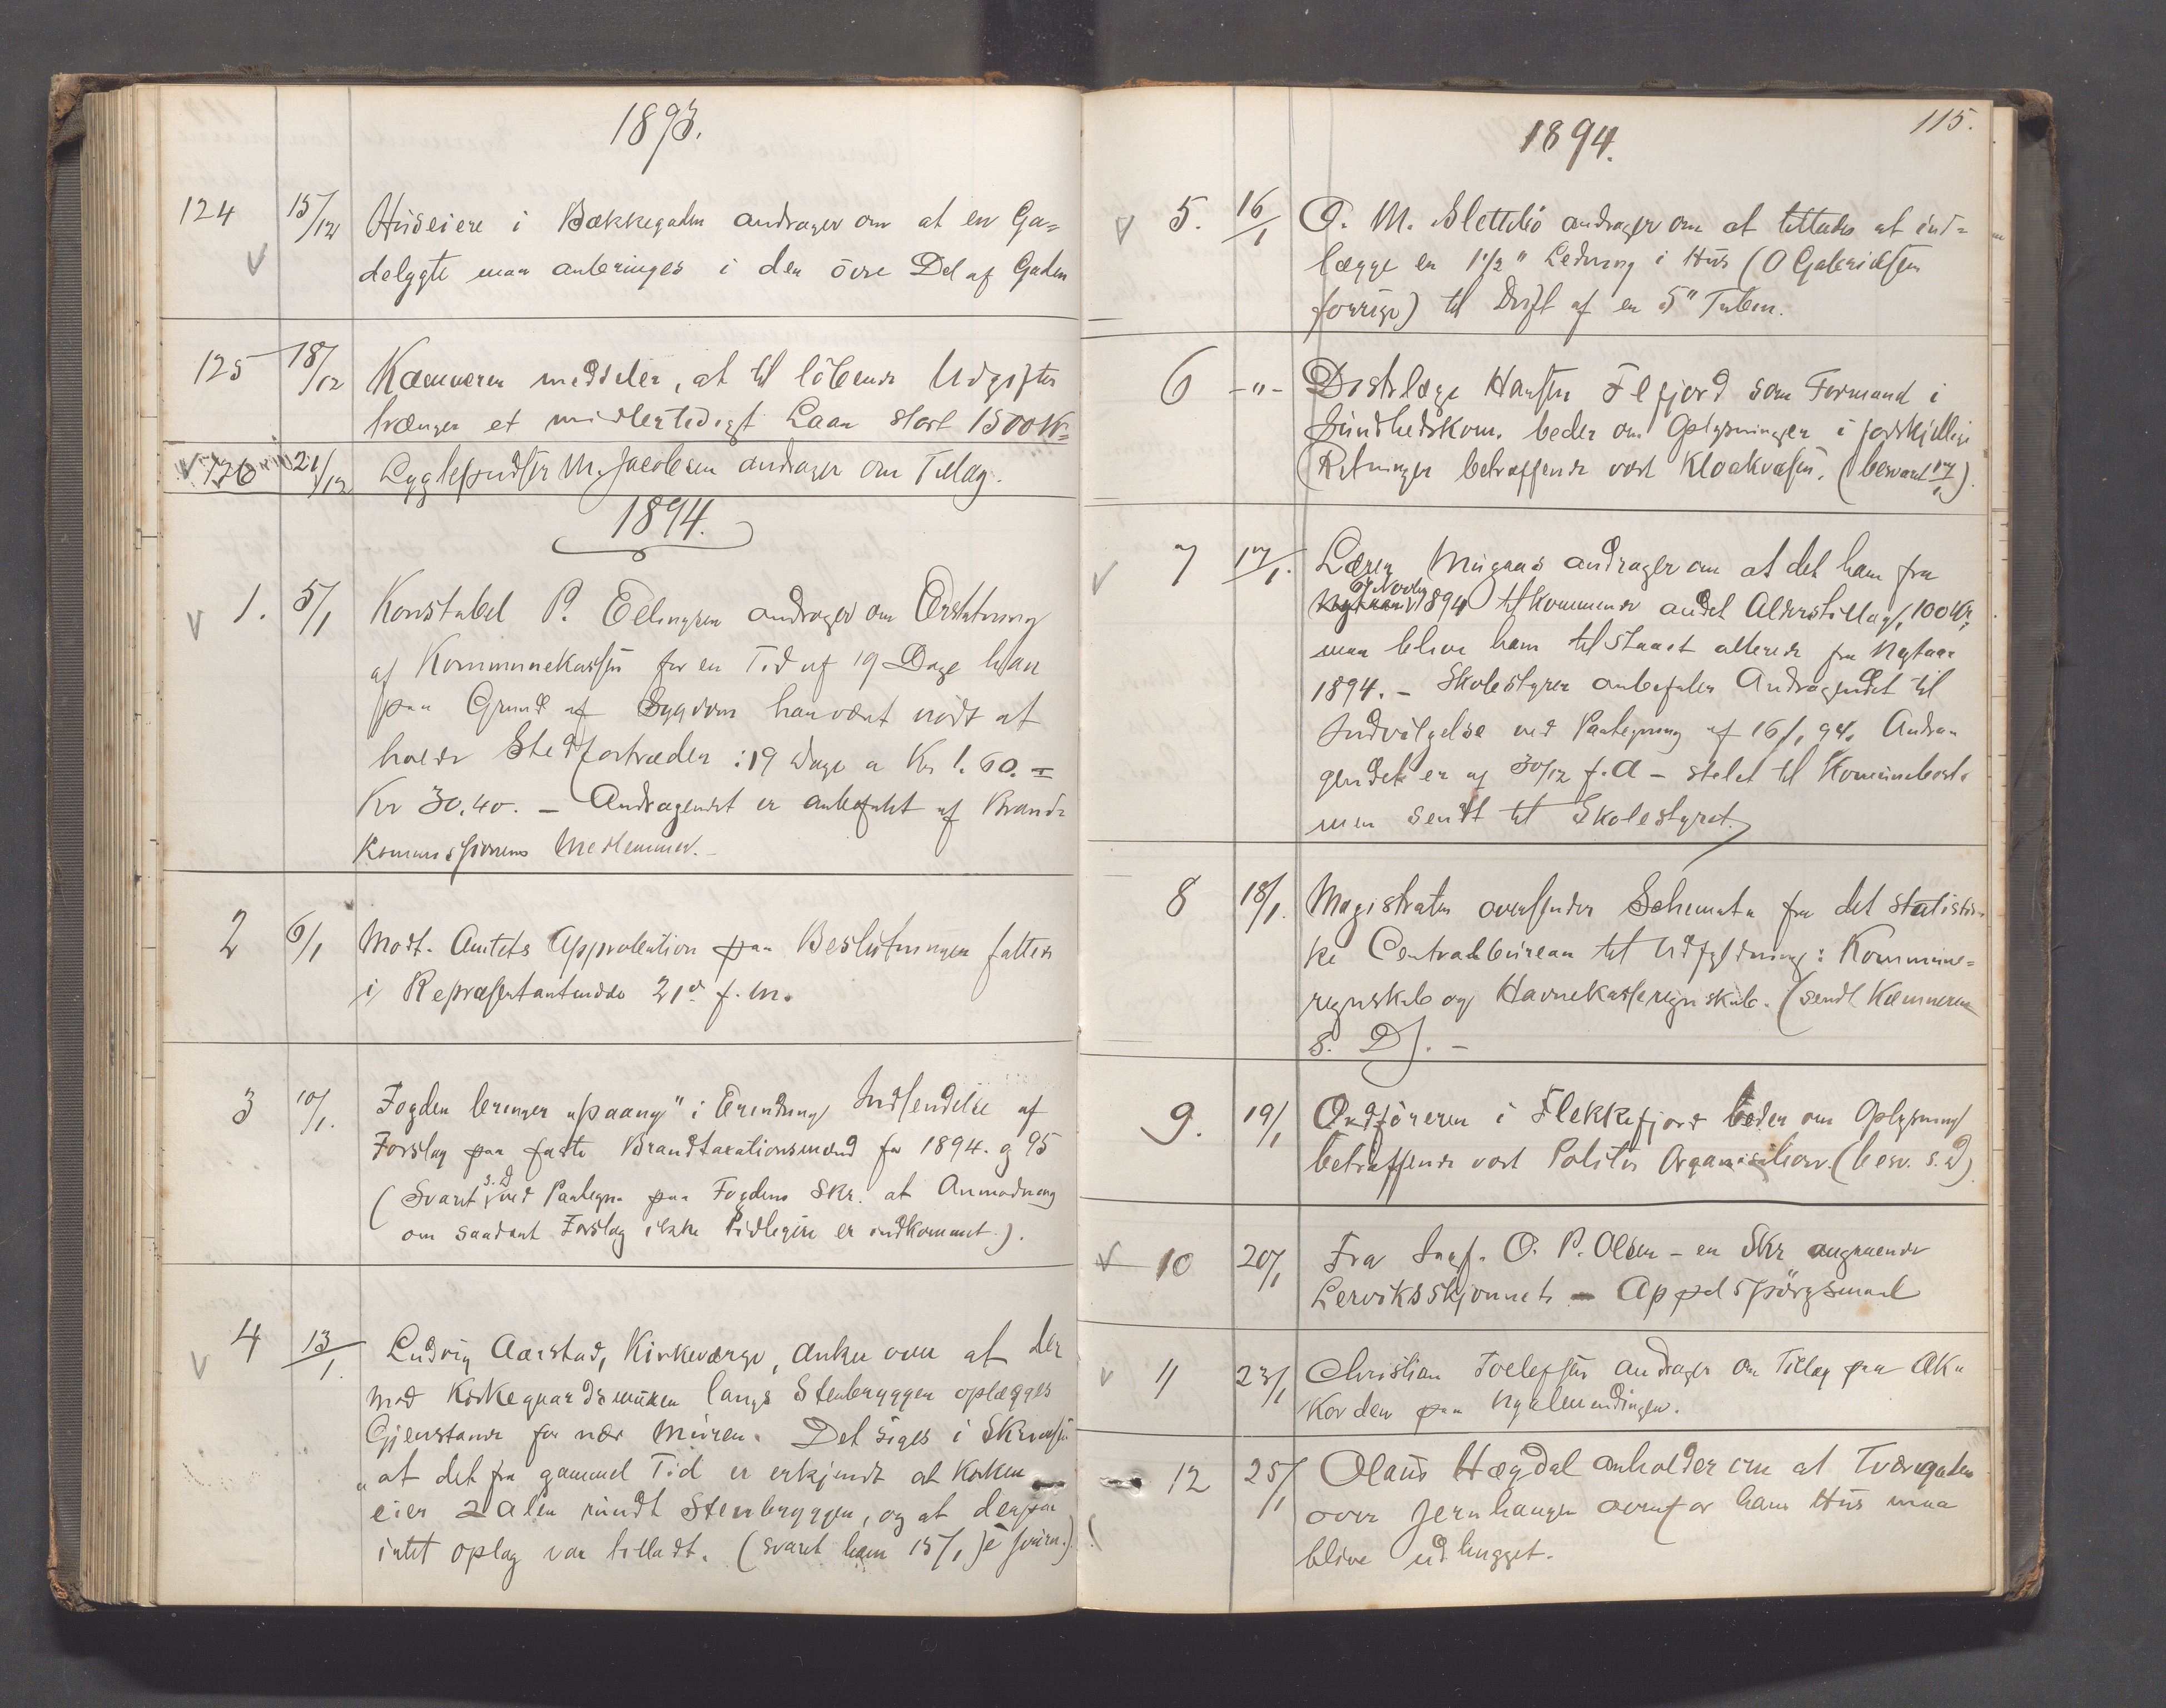 1893.
124 15/12 Huseiere i Bækkegaden andrager om at en Ga=
delygte maa anbringes i den övre Del af Gaden
125 18/12 Kæmneren meddeler, at til löbende Udgifter
trænges et midlertidigt Laan stort 1500 Kr
126 21/12 Lygtepudser M. Jacobsen andrager om Tillæg.
1894.
1. 5/1 Konstabel P. Ellingsen andrager om Erstatning
af Kommunekassen for en Tid af 19 Dage han
paa Grund af Sygdom har været nödt at
holde Stedfortræder : 19 Dage a Kr 1.60. =
Kr 30,40. – Andragendet er anbefalet af Brand=
kommissionens Medlemmer. –
2 6/1 Modt. Amtets Approbation paa Beslutninger fattede
i Repræsentantmöde 21de f. M.
3 10/1. Fogden bringer "paany" i Erindring Indsendelse af
Forslag paa faste Brandtaxationsmænd for 1894. og 95
(Svaret s. D. ved Paategn. paa Fogdens Skr. at Anmodning
om saadant Forslag ikke tidligere er indkommet.).
4 13/1. Ludvig Aarstad, Kirkeværge, anker over at der
mod Kirkegaardsmuren langs Stenbryggen oplægges
Gjenstande for nær Muren. Det siges i Skrivelsen
"at det fra gammel Tid er erkjendt at Kirken
eier 2 Alen rundt Stenbryggen, og at derpaa
intet oplag var tilladt. (svaret ham 15/1
115.
1894.
5. 16/1 O. M. Slettebö andrager om at tillades at ind=
lægge en 1 1/2" Ledning i Hus (O Gabrielsen
forrige) til Drift af en 5" Turbin.
6 –"– Distrlæge Hansen Flfjord som Formand i
Sundhedskom. beder om Oplysninger i forskjellige
Retninger betræffende vort Kloakvæsen. (besvaret 17/1).
7 17/1. Lærer Mugaas andrager om at det ham fra
1894 tilkommende andet Alderstillæg, 100 Kr,
maa blive ham tilstaaet allerede fra Nytaar
1894. – Skolestyret anbefaler Andragendet til
Indvilgelse ved Paategning af 16/1 94. Andra=
gendet er af 30/12 f. A – stilet til Kommunebest.
men sendt til Skolestyret.
8 18/1. Magistraten oversender Schemata fra det statistis=
ke Centralbureau til Udfyldning: Kommune=
regnskab og Havnekasseregnskab. (sendt Kæmneren
s. D). –
9. 19/1 Ordföreren i Flekkefjord beder om Oplysning
betræffende vort Politis Organisation. (besv. s. D)
10 20/1 Fra Sagf. O. P. Olsen – en Skr angaaende
Lerviksskjönnets – Appelspörgsmaal
11 23/1 Christian Tollefsen andrager om Tillæg paa Ak=
korden paa Nyalmendingen.
12 25/1 Olaus Hægdal anholder om at Tværgaden
over Jernhaugen ovenfor hans Hus maa
blive udhugget.